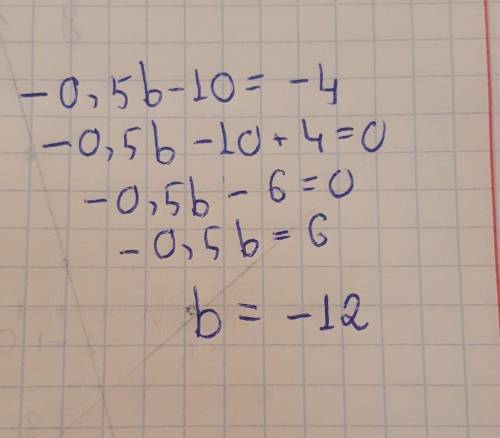 -0,5b-10=-4
-0,5b-10+4=0
-0,5b-6=0
-0,5b=6
b=-12